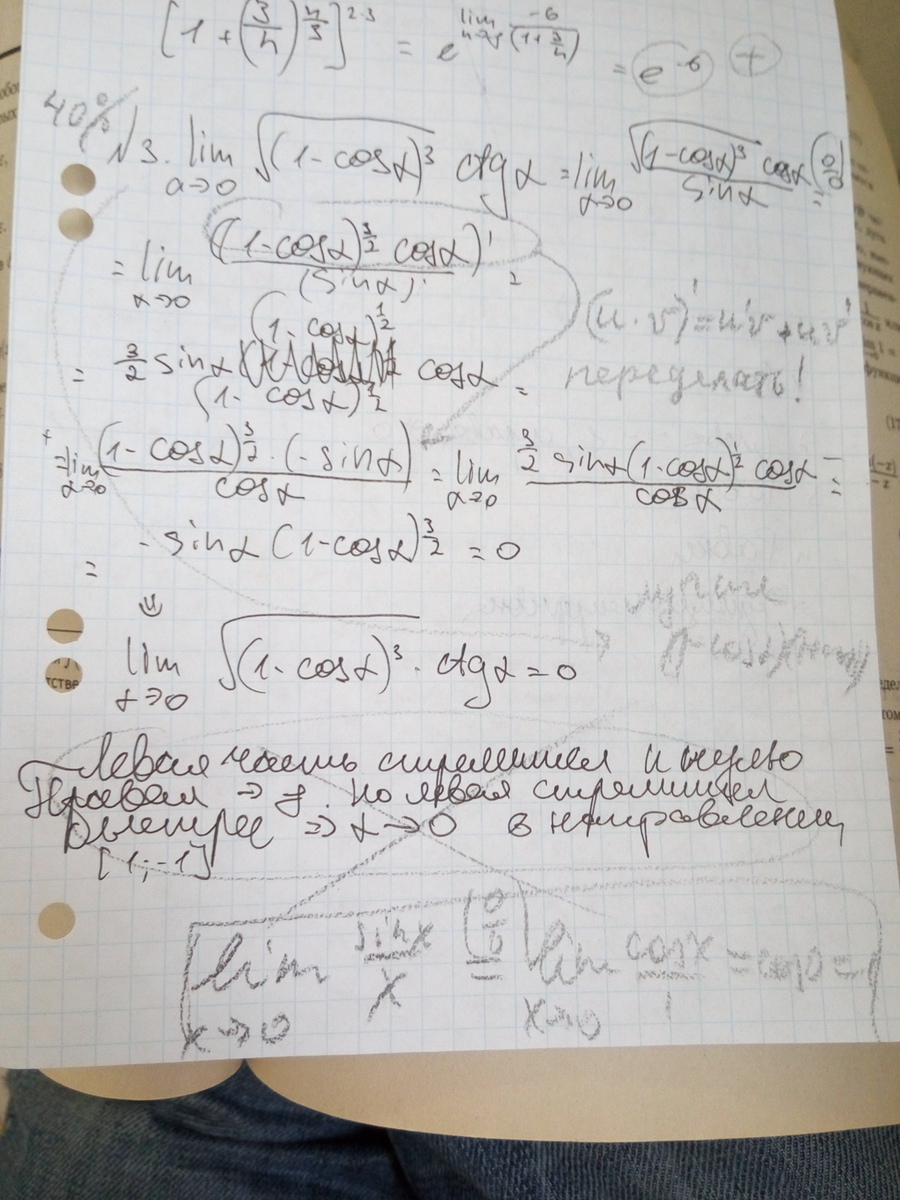 [1 + (3/n)^{n/3}]^{2·3} = e^{lim n→ -6/(1+3/n)} = e^{-6} +
40%
№3. lim α→0 √(1-cosα)³ ctgα = lim α→0 √(1-cosα)³ cosα / sinα (0/0) =
= lim α→0 ((1-cosα)^{3/2} cosα)' / (sinα)' =
(u·v)' = u'v + uv'
(1-cosα)^{1/2}
= 3/2 sinα cosα =
(1-cosα)^{1/2}
переделать!
= lim α→0 (1-cosα)^{3/2} · (-sinα) / cosα = lim α→0 3/2 sinα (1-cosα)^{1/2} cosα / cosα =
= -sinα (1-cosα)^{3/2} = 0
⇓
лучше
lim α→0 √(1-cosα)³ · ctgα = 0
→
Левая часть стремится к нулю
Правая → но левая стремится
быстрее ⇒ α→0 в направлении
[1;-1]
lim x→0 sinx/x (0/0) = lim x→0 cosx/1 = cos0 = 1
тстве